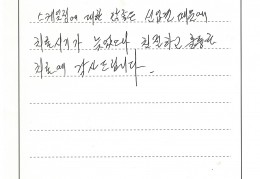 스케일링에 대한 잘못된 선입견 때문에
치료시기가 늦었으나 친절하고 훌륭한
치료에 감사드립니다.